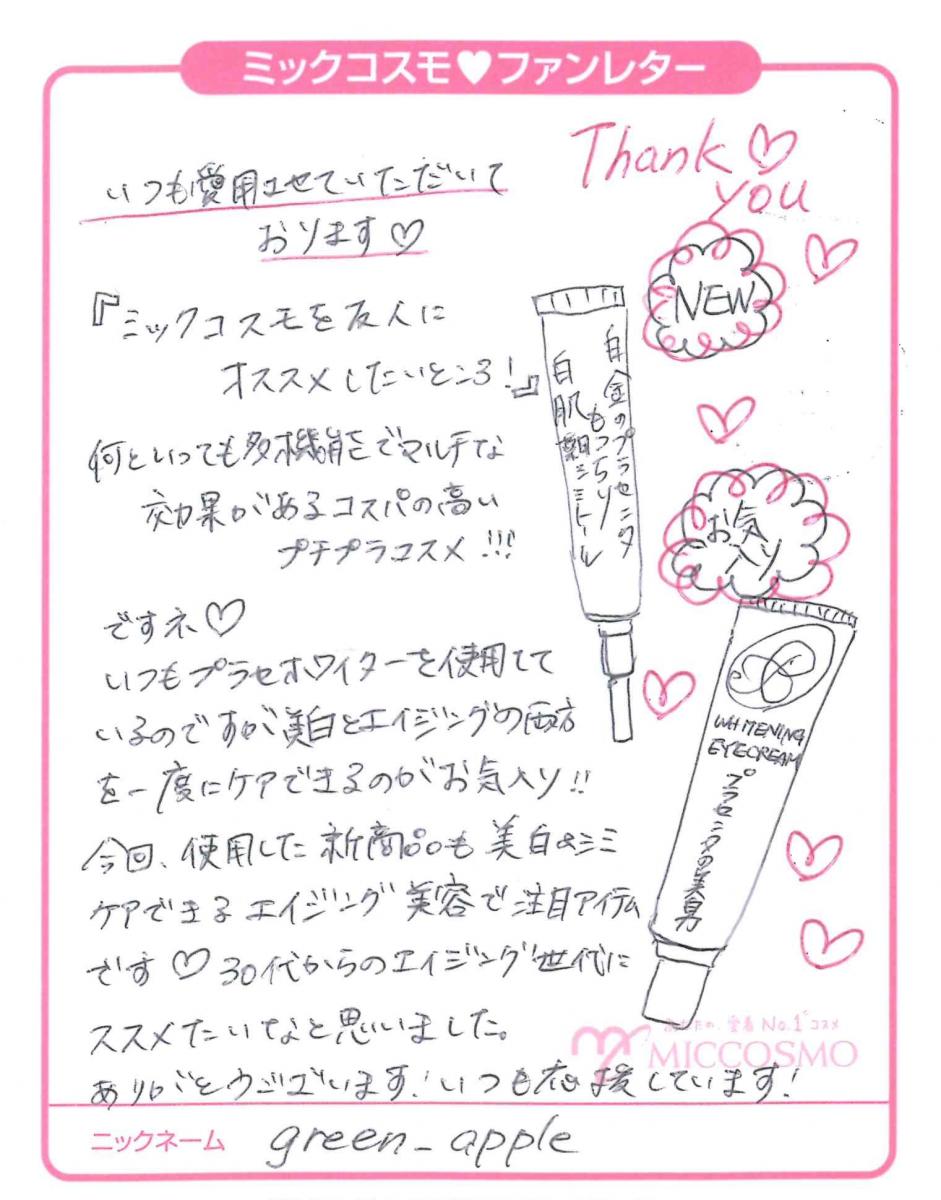 ミックコスモ♥ファンレター
Thank♡
you
いつも愛用させていただいて
おります♡
『ミックコスモを友人に
オススメしたいところ!』
何といっても多機能でマルチな
効果があるコスパの高い
プチプラコスメ!!!
ですネ♡
いつもプラセホワイターを使用して
いるのですが美白とエイジングの両方
を一度にケアできるのがお気入り!!
今回、使用した新商品も美白&シミ
ケアできるエイジング美容で注目アイテム
です♡30代からのエイジング世代に
ススメたいなと思いました。
ありがとうございます!いつも応援しています!
NEW
白金のプラセンタ
もっちり
白肌
お気
入り
WHITENING
EYECREAM
プラセンタの美身
あなたの、愛着No.1コスメ
MICCOSMO
ニックネーム green_apple